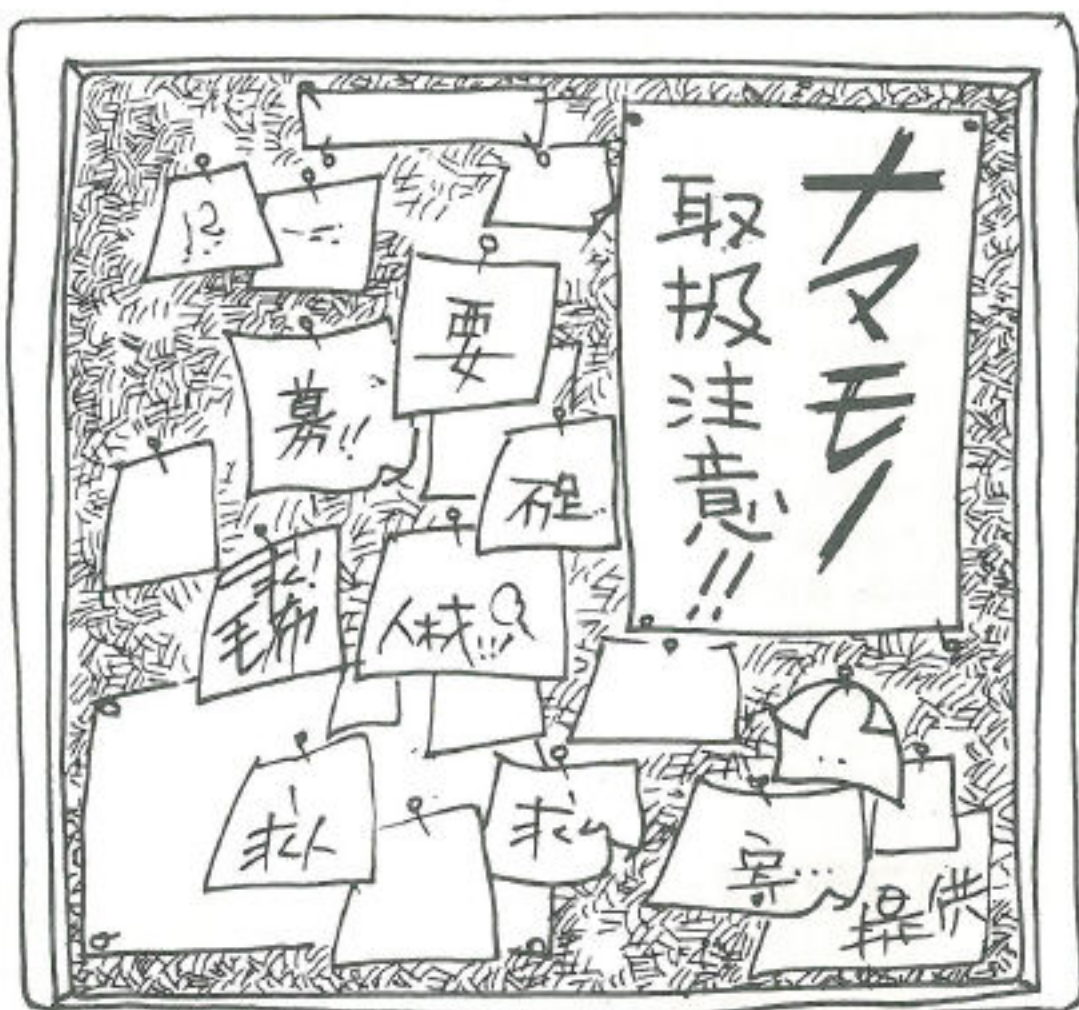 ナマモノ
取扱注意!!
!?
要
募!!
不足…
求!
毛布
人材!!
求人
求ム
提供